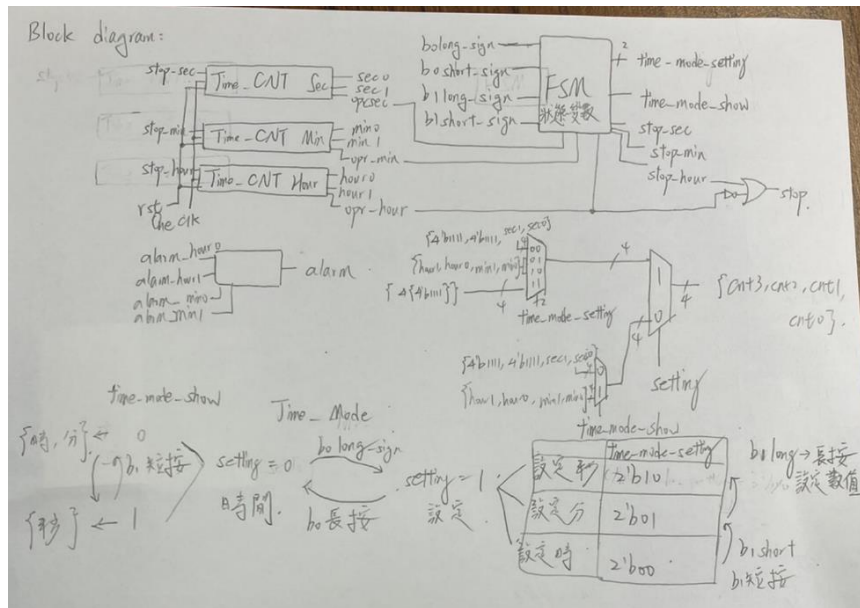 Block diagram:
stop-sec
Time-CNT Sec
sec0
sec1
opr_sec
stop-min
Time-CNT Min
min0
min1
opr_min
stop-hour
Time-CNT Hour
hour0
hour1
opr-hour
rst
One clk
b0long-sign
b0short-sign
b1long-sign
b1short-sign
FSM
狀態變數
2
time-mode-setting
time_mode_show
stop-sec
stop-min
stop-hour
stop
alarm_hour0
alarm_hour1
alarm_min0
alarm_min1
alarm
{4'b1111, 4'b1111, sec1, sec0}
{hour1, hour0, min1, min0}
{4{4'b1111}}
4
00
01
10
11
2
time_mode_setting
4
1
0
4
4
{cnt3, cnt2, cnt1,
cnt0}.
setting
{4'b1111, 4'b1111, sec1, sec0}
{hour1, hour0, min1, min0}
0
1
time_mode_show
time-mode-show
{時,分} ← 0
b1短接
{秒} ← 1
Time_Mode
setting = 0
時間.
b0long-sign
b0長接
setting = 1
設定.
time-mode-setting
設定秒 2'b10
設定分 2'b01
設定時 2'b00
b0long → 長接
設定數值
b1short
b1短接